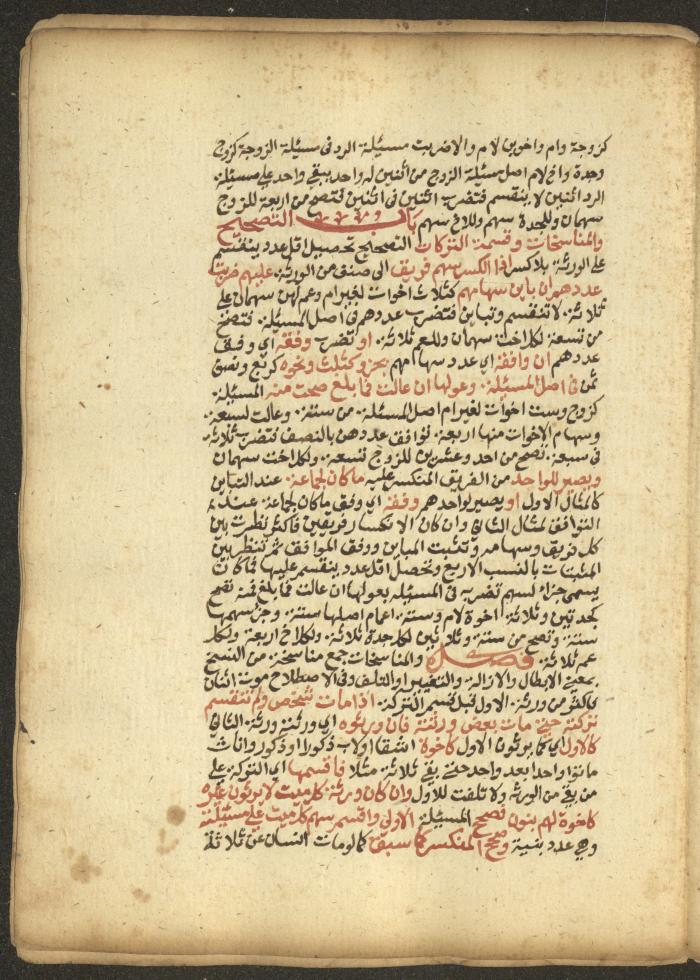 كزوجة وام واخوين لام والا ضربت مسئلة الرد فى مسئلة الزوجة كزوج
وجدة واخ لام اصل مسئلة الزوج من اثنين له واحد يبقى واحد على مسئلة
الرد اثنين لا ينقسم فتضرب اثنين فى اثنين فتصح من اربعة للزوج
سهمان وللجدة سهم وللاخ سهم باب التصحيح
والمناسخات وقسمة التركات التصحيح تحصيل اقل عدد ينقسم
على الورثة بلا كسر اذا انكسر سهم فريق اى صنف من الورثة عليهم ضربت
عددهم ان باين سهامهم كثلاث اخوات لغير ام وعم لهن سهمان على
ثلاثة لا تنقسم وتباين فتضرب عددهم فى اصل المسئلة فتصح
من تسعة لكل اخت سهمان وللعم ثلاثة او تضرب وفقه اى وفق
عددهم ان وافقه اى عدد سهامهم بجزء كثلث ونحوه كربع ونصف
ثمن فى اصل المسئلة وعولها ان عالت فما بلغ صحت منه المسئلة
كزوج وست اخوات لغير ام اصل المسئلة من ستة وعالت لسبعة
وسهام الاخوات منها اربعة توافق عددهن بالنصف فتضرب ثلاثة
فى سبعة تصح من احد وعشرين للزوج تسعة ولكل اخت سهمان
ويصير للواحد من الفريق المنكسر عليه ما كان لجماعة عند التباين
كالمثال الاول او يصير لواحدهم وفقه اى وفق ما كان لجماعة عند
التوافق كمثال الثانى وان كان الانكسار فريقين فاكثر نظرت بين
كل فريق وسهامه وتثبت المباين ووفق الموافق ثم تنظر بين
المثبتات بالنسب الاربع وتحصل اقل عدد ينقسم عليها فما كان
يسمى جزء السهم تضربه فى المسئلة بعولها ان عالت فما بلغ فمنه تصح
كجدتين وثلاثة اخوة لام وستة اعمام اصلها ستة وجزء سهمها
ستة وتصح من ستة وثلاثين لكل جدة ثلاثة ولكل اخ اربعة ولكل
عم ثلاثة فصل والمناسخات جمع مناسخة من النسخ
بمعنى الابطال والازالة والتغيير او النقل وفى الاصطلاح موت اثنان
فاكثر من ورثة الاول قبل قسم التركة اذا مات شخص ولم تنقسم
تركته حتى مات بعض ورثته فان ورثوه اى ورثه ورثة الثانى
كالاول اى كما يرثون الاول كاخوة اشقا او لاب ذكورا او ذكور واناث
ماتوا واحدا بعد واحد حتى بقى ثلاثة مثلا فاقسمها اى التركة على
من بقى من الورثة ولا تلتفت للاول وان كان ورثة كل ميت لا يرثون غيره
كاخوة لهم بنون فصحح المسئلة الاولى واقسم سهم كل ميت على مسئلته
وهى عدد بنيه وصحح المنكسر كما سبق كما لو مات انسان عن ثلاثة